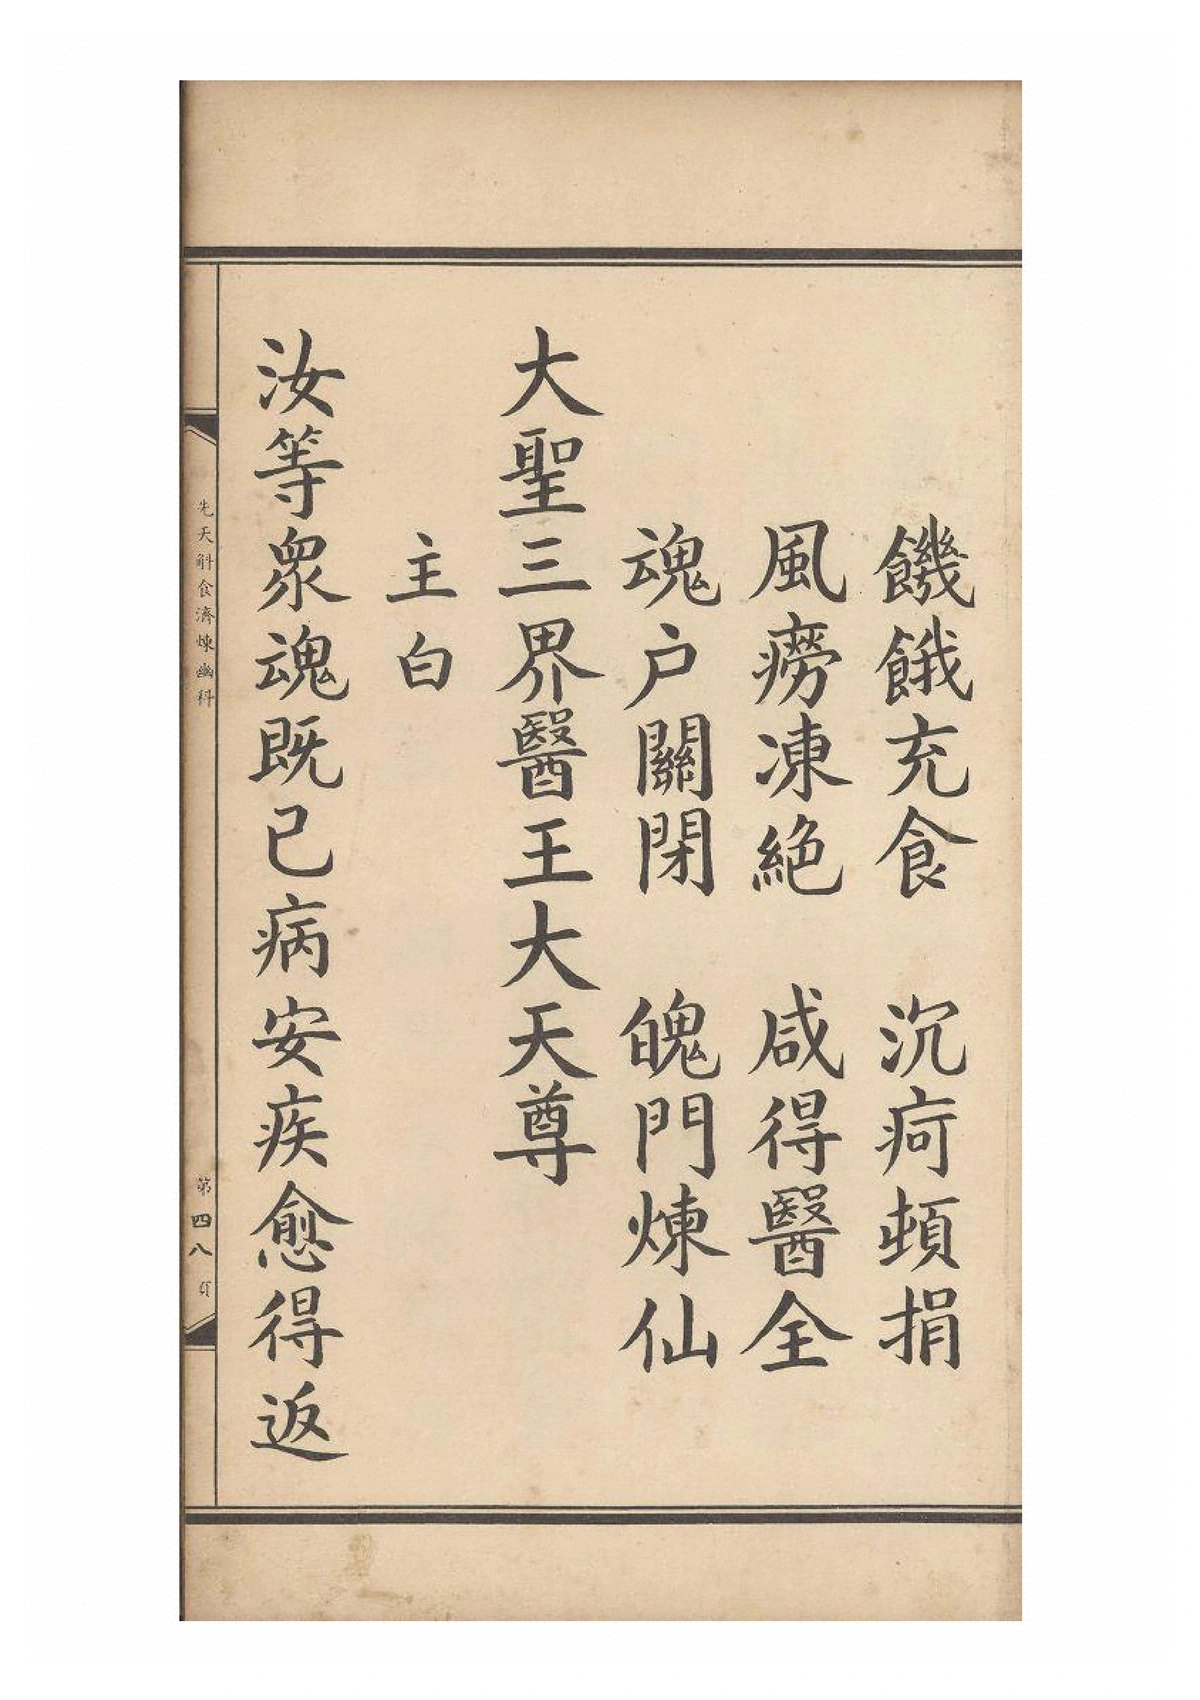 饑餓充食　沉疴頓捐
風癆凍絕　咸得醫全
魂户關閉　魄門煉仙
大聖三界醫王大天尊
主白
汝等衆魂既已病安疾愈得返
先天斛食濟煉幽科
第四八頁